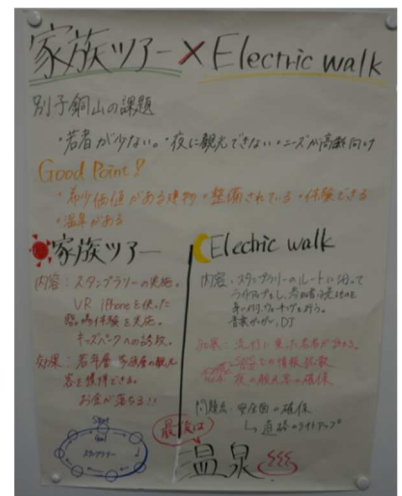 家族ツアー×Electric walk
別子銅山の課題
・若者が少ない。・夜に観光できない・ニーズが高齢向け
Good Point!
・希少価値がある建物・整備されている・体験できる
・温泉がある
家族ツアー
内容:スタンプラリーの実施。
VR iPhoneを使った
体験を実施。
キッズパークへの誘致。
効果:若年層、家族層の観光
客を獲得できる。
お金が落ちる!!
Start
Goal
スタンプラリー
Electric walk
内容、スタンプラリーのルートに沿って
ライトアップをし、
音楽 DJ
効果:流行に乗った若者が訪れる。
SNSでの情報拡散
夜の観光客の確保
問題点:安全面の確保
↳道路のライトアップ
最後は
温泉